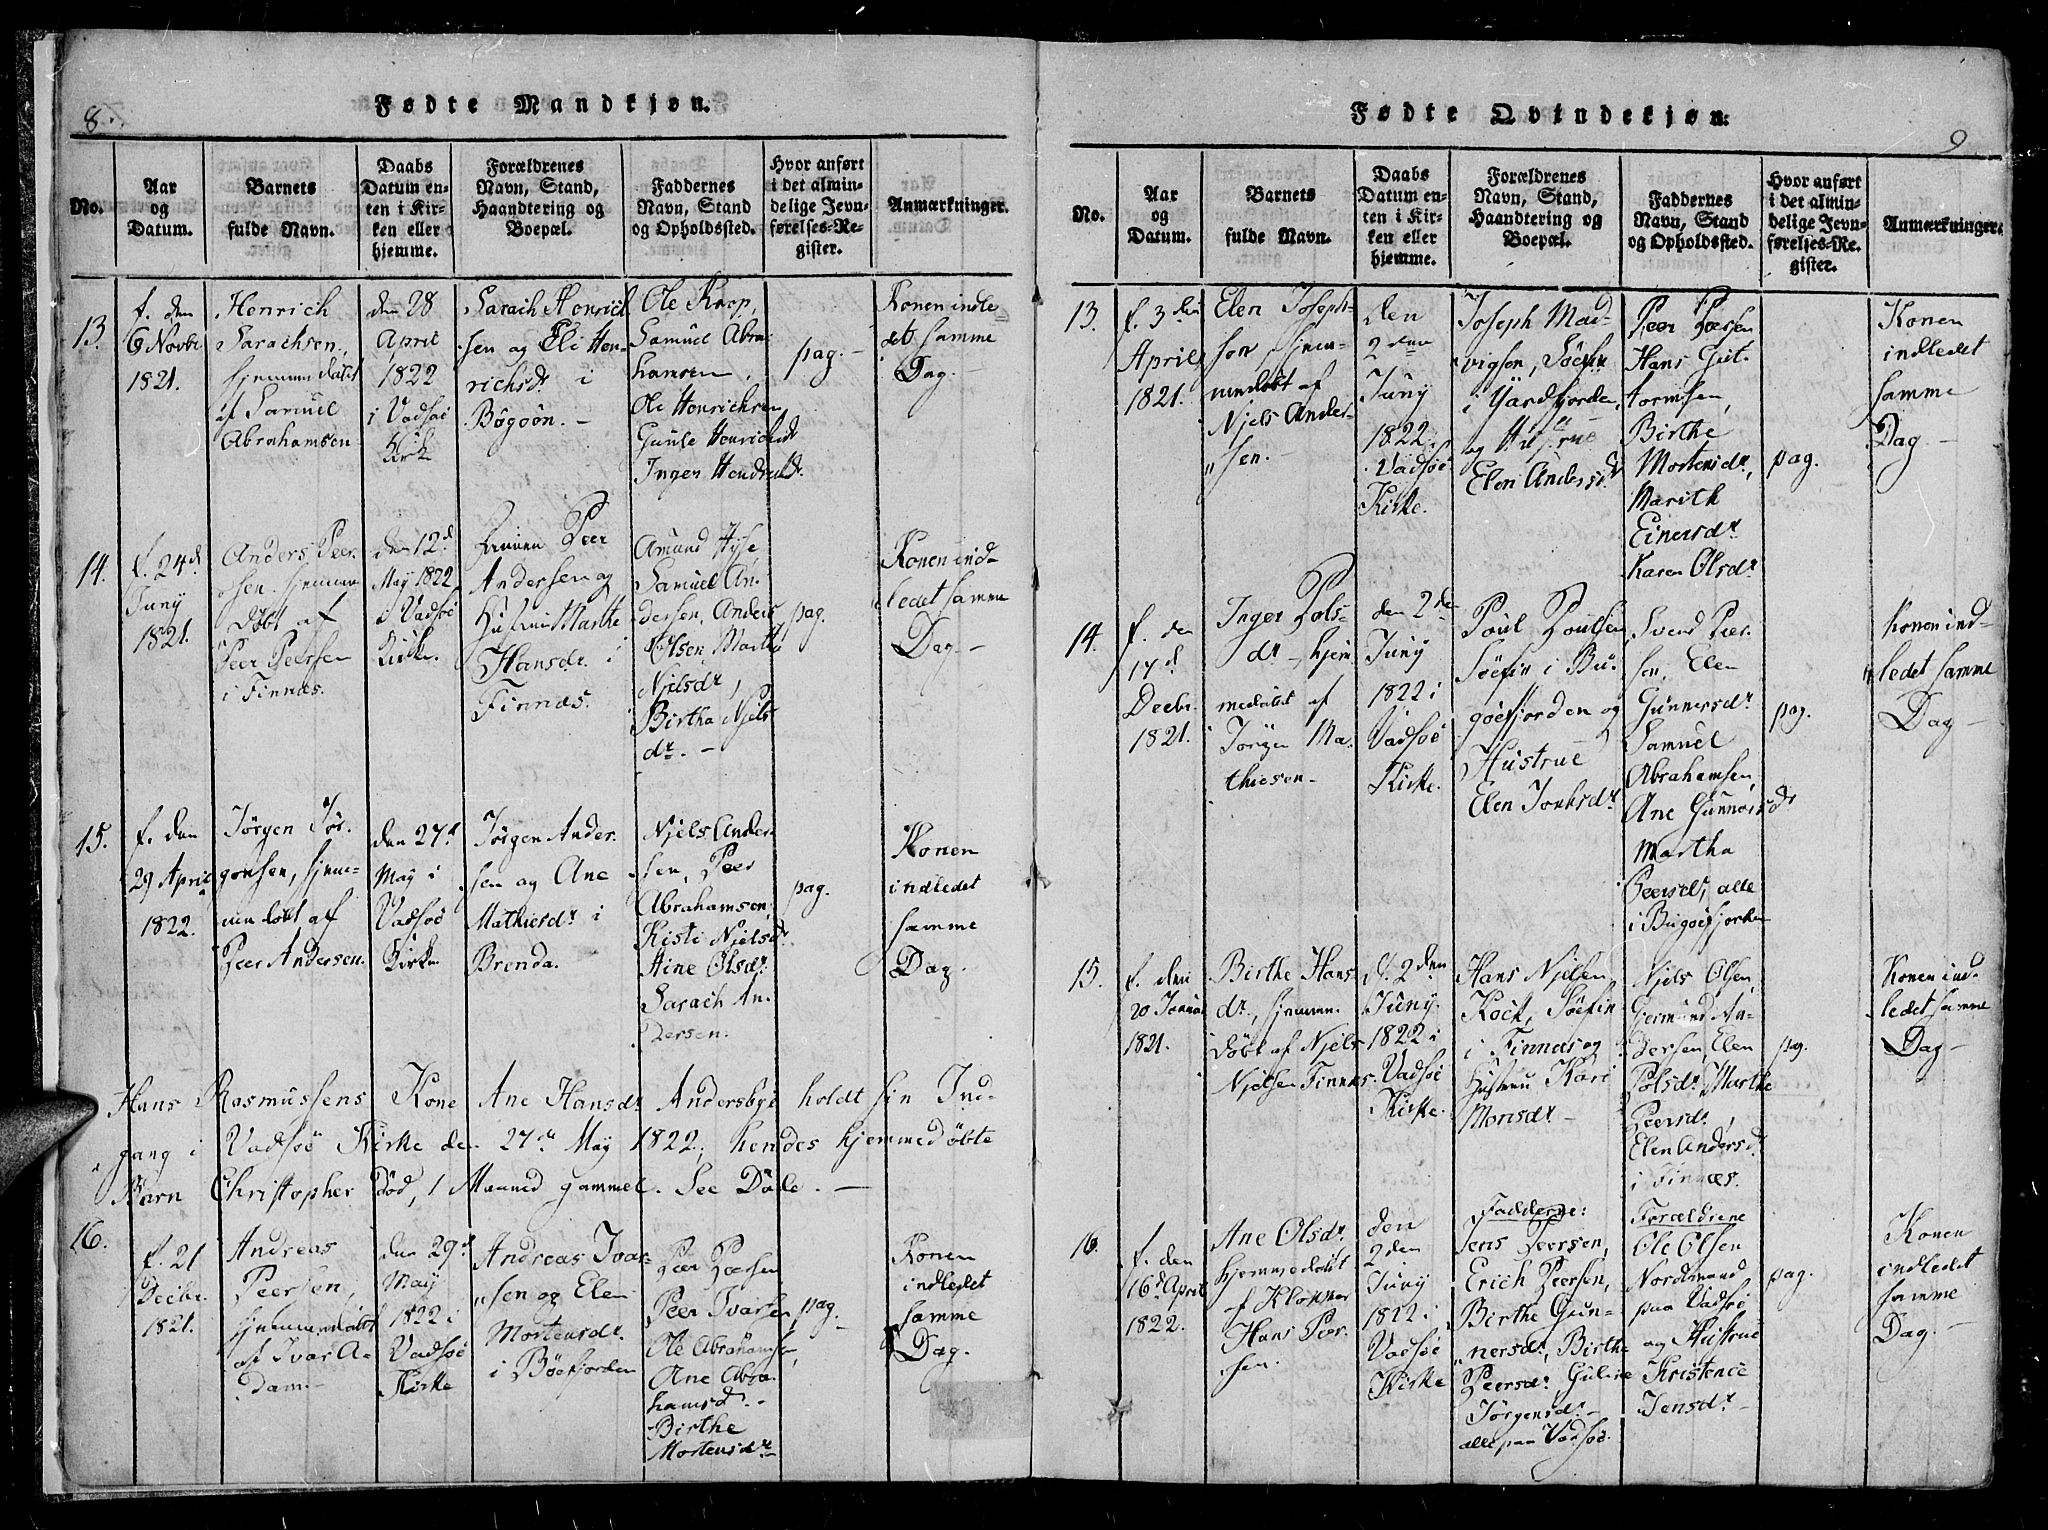 8.
Fødte Mandkjøn.
No.
Aar
og
Datum.
Barnets
fulde Navn.
Daabs
Datum en-
ten i Kir-
ken eller
hjemme.
Forældrenes
Navn, Stand,
Haandtering og
Boepæl.
Faddernes
Navn, Stand
og Opholdssted.
Hvor anført
i det almin-
delige Jevn-
førelses-Re-
gister.
Anmærkninger.
13.
f. den
6 Novbr
1821.
Henrich
Sarachsen,
hjemmedøbt
af Samuel
Abrahamsen
den 28
April
1822
i Vadsöe
Kirke
Sarach Henrich
sen og Eli Hen-
richsdr i
Bögöön. -
Ole Krop,
Samuel Abra
hamsen,
Ole Henrichsen
Gunle Henrichsdr
Inger Hendrichsdr.
pag. -
Konen indle
det samme
Dag. -
14.
f. 24d
Juny
1821.
Anders Peer
sen hjemme
döbt af
Peer Peersen
i Finnæs.
den 12d
May 1822
i Vadsöe
Kirke.
Peer
Andersen og
Hustrue Marthe
Hansdr. i
Finnæs.
Amund Hyse,
Samuel An-
dersen, Anders
Olsen, Martha
Njelsdr,
Birtha Njels
dr. -
pag.
Konen ind-
ledet samme
Dag. -
15.
f. den
29 April
1822.
Jørgen Jør-
gensen, hjem-
medøbt af
Peer Andersen.
den 27d
May i
Vadsöe
Kirke
Jørgen Ander-
sen og Ane
Mathisdr i
Brenda.
Njels Ander-
sen, Peer
Abrahamsen,
Kisti Njelsdr.
Aine Olsdr.
Sarach An-
dersen.
pag.
Konen
indledet
samme
Dag.
Hans Rasmussens Kone Ane Hansdr Andersbye holdt sin Ind-
gang i Vadsöe Kirke den 27de May 1822, hendes hjemmedøbte
Barn Christopher Död, 1 Maaned gammel. See Döde. -
16.
f. 21
Decbr.
1821.
Andreas
Peersen,
hjemmedöbt
af Ivar A-
dam-
den 29d
May
1822 i
Vadsöe
Kirke
Andreas Ivar-
sen og Elen
Mortensdr.
i Böefjorden
Peer Peersen
Peer Ivarsen
Ole Abrahamsen,
Ane Abra-
hamsd. -
Birthe
Mortensdr
pag.
Konen
indledet
samme
Dag.
9
Fødte Qvindekjøn.
No.
Aar
og
Datum.
Barnets
fulde Navn.
Daabs
Datum en-
ten i Kir-
ken eller
hjemme.
Forældrenes
Navn, Stand,
Haandtering og
Boepæl.
Faddernes
Navn, Stand
og Opholdssted.
Hvor anført
i det almin-
delige Jevn-
førelses-Re-
gister.
Anmærkninger.
13.
f. 3 den
April
1821.
Elen Joseph-
son, hjem-
medøbt af
Njels Ander-
sen. -
den
2 den
Juny
1822.
i Vadsöe
Kirke.
Joseph Mad-
vigson, Söefin
i Jardfjorden,
og Hustrue
Elen Andersdr
Peer Peersen
Hans Gut-
tormsen,
Birthe
Mortensdr,
Marith
Einersdr
Karen Olsdr
pag.
Konen
indledet
samme
Dag. -
14.
f. den
17d
Decbr.
1821.
Inger Pols-
dr - hjem
medøbt af
Jörgen Ma-
thiesen -
den 2den
Juny
1822 i
Vadsöe
Kirke.
Poul Poulsen
Söefin i Bu-
göefjorden og
Hustrue
Elen Jonhsdr
Svend Peer-
sen, Elen
Gunnersdr
Samuel
Abrahamsen,
Ane Gunnersdr
Martha
Peersdr, alle
i Bugöefjorden
pag.
Konen ind-
ledet samme
Dag -
15.
f. den
20 Januar
1821.
Birthe Hans-
dr., hjemme-
döbt af Njels
Njelsen Finnæs.
d. 2den
Juny.
1822 i
Vadsöe
Kirke.
Hans Njelsen
Kock, Söefin
i Finnæs og
Hustrue Kari
Monsdr -
Njels Olsen,
Gjermund An-
dersen, Elen
Polsdr, Marthe
Peersdr,
Elen Andersdr
i Finnæs.
pag.
Konen ind-
ledet samme
Dag -
16.
f. den
16d April
1822.
Ane Olsdr.
hjemmedöbt
af Klokker
Hans Peer-
sen.
den
2 den
Juny
1822. i
Vadsöe
Kirke
Fadderne:
Jens Peersen,
Erich Peersen,
Birthe Gun-
nersdr, Birthe
Peersdr Guline
Jörgensdr -
alle paa Vadsöe.
Forældrene
Ole Olsen
Nordmand
paa Vadsöe
og Hustrue
Kristence
Jensdr -
pag.
Konen
indledet
samme
Dag. -